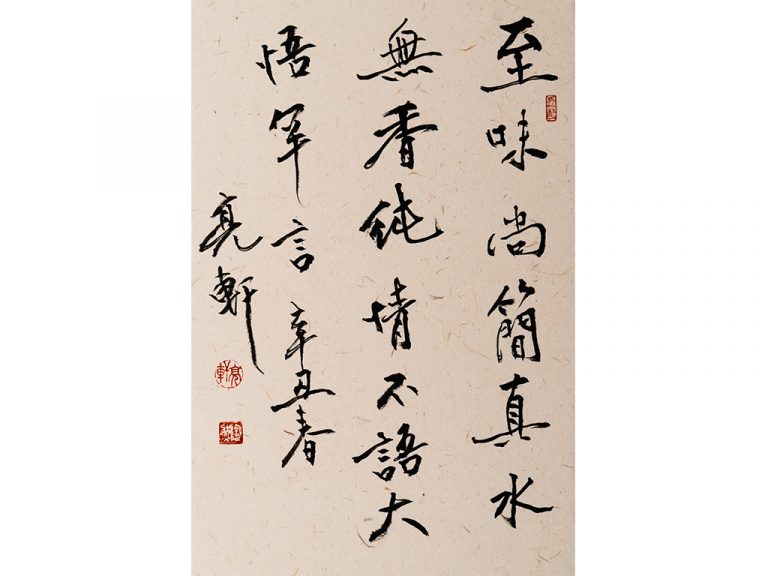 至味尚簡真水
無香純情不語大
悟罕言 辛丑春
亮軒
亮軒